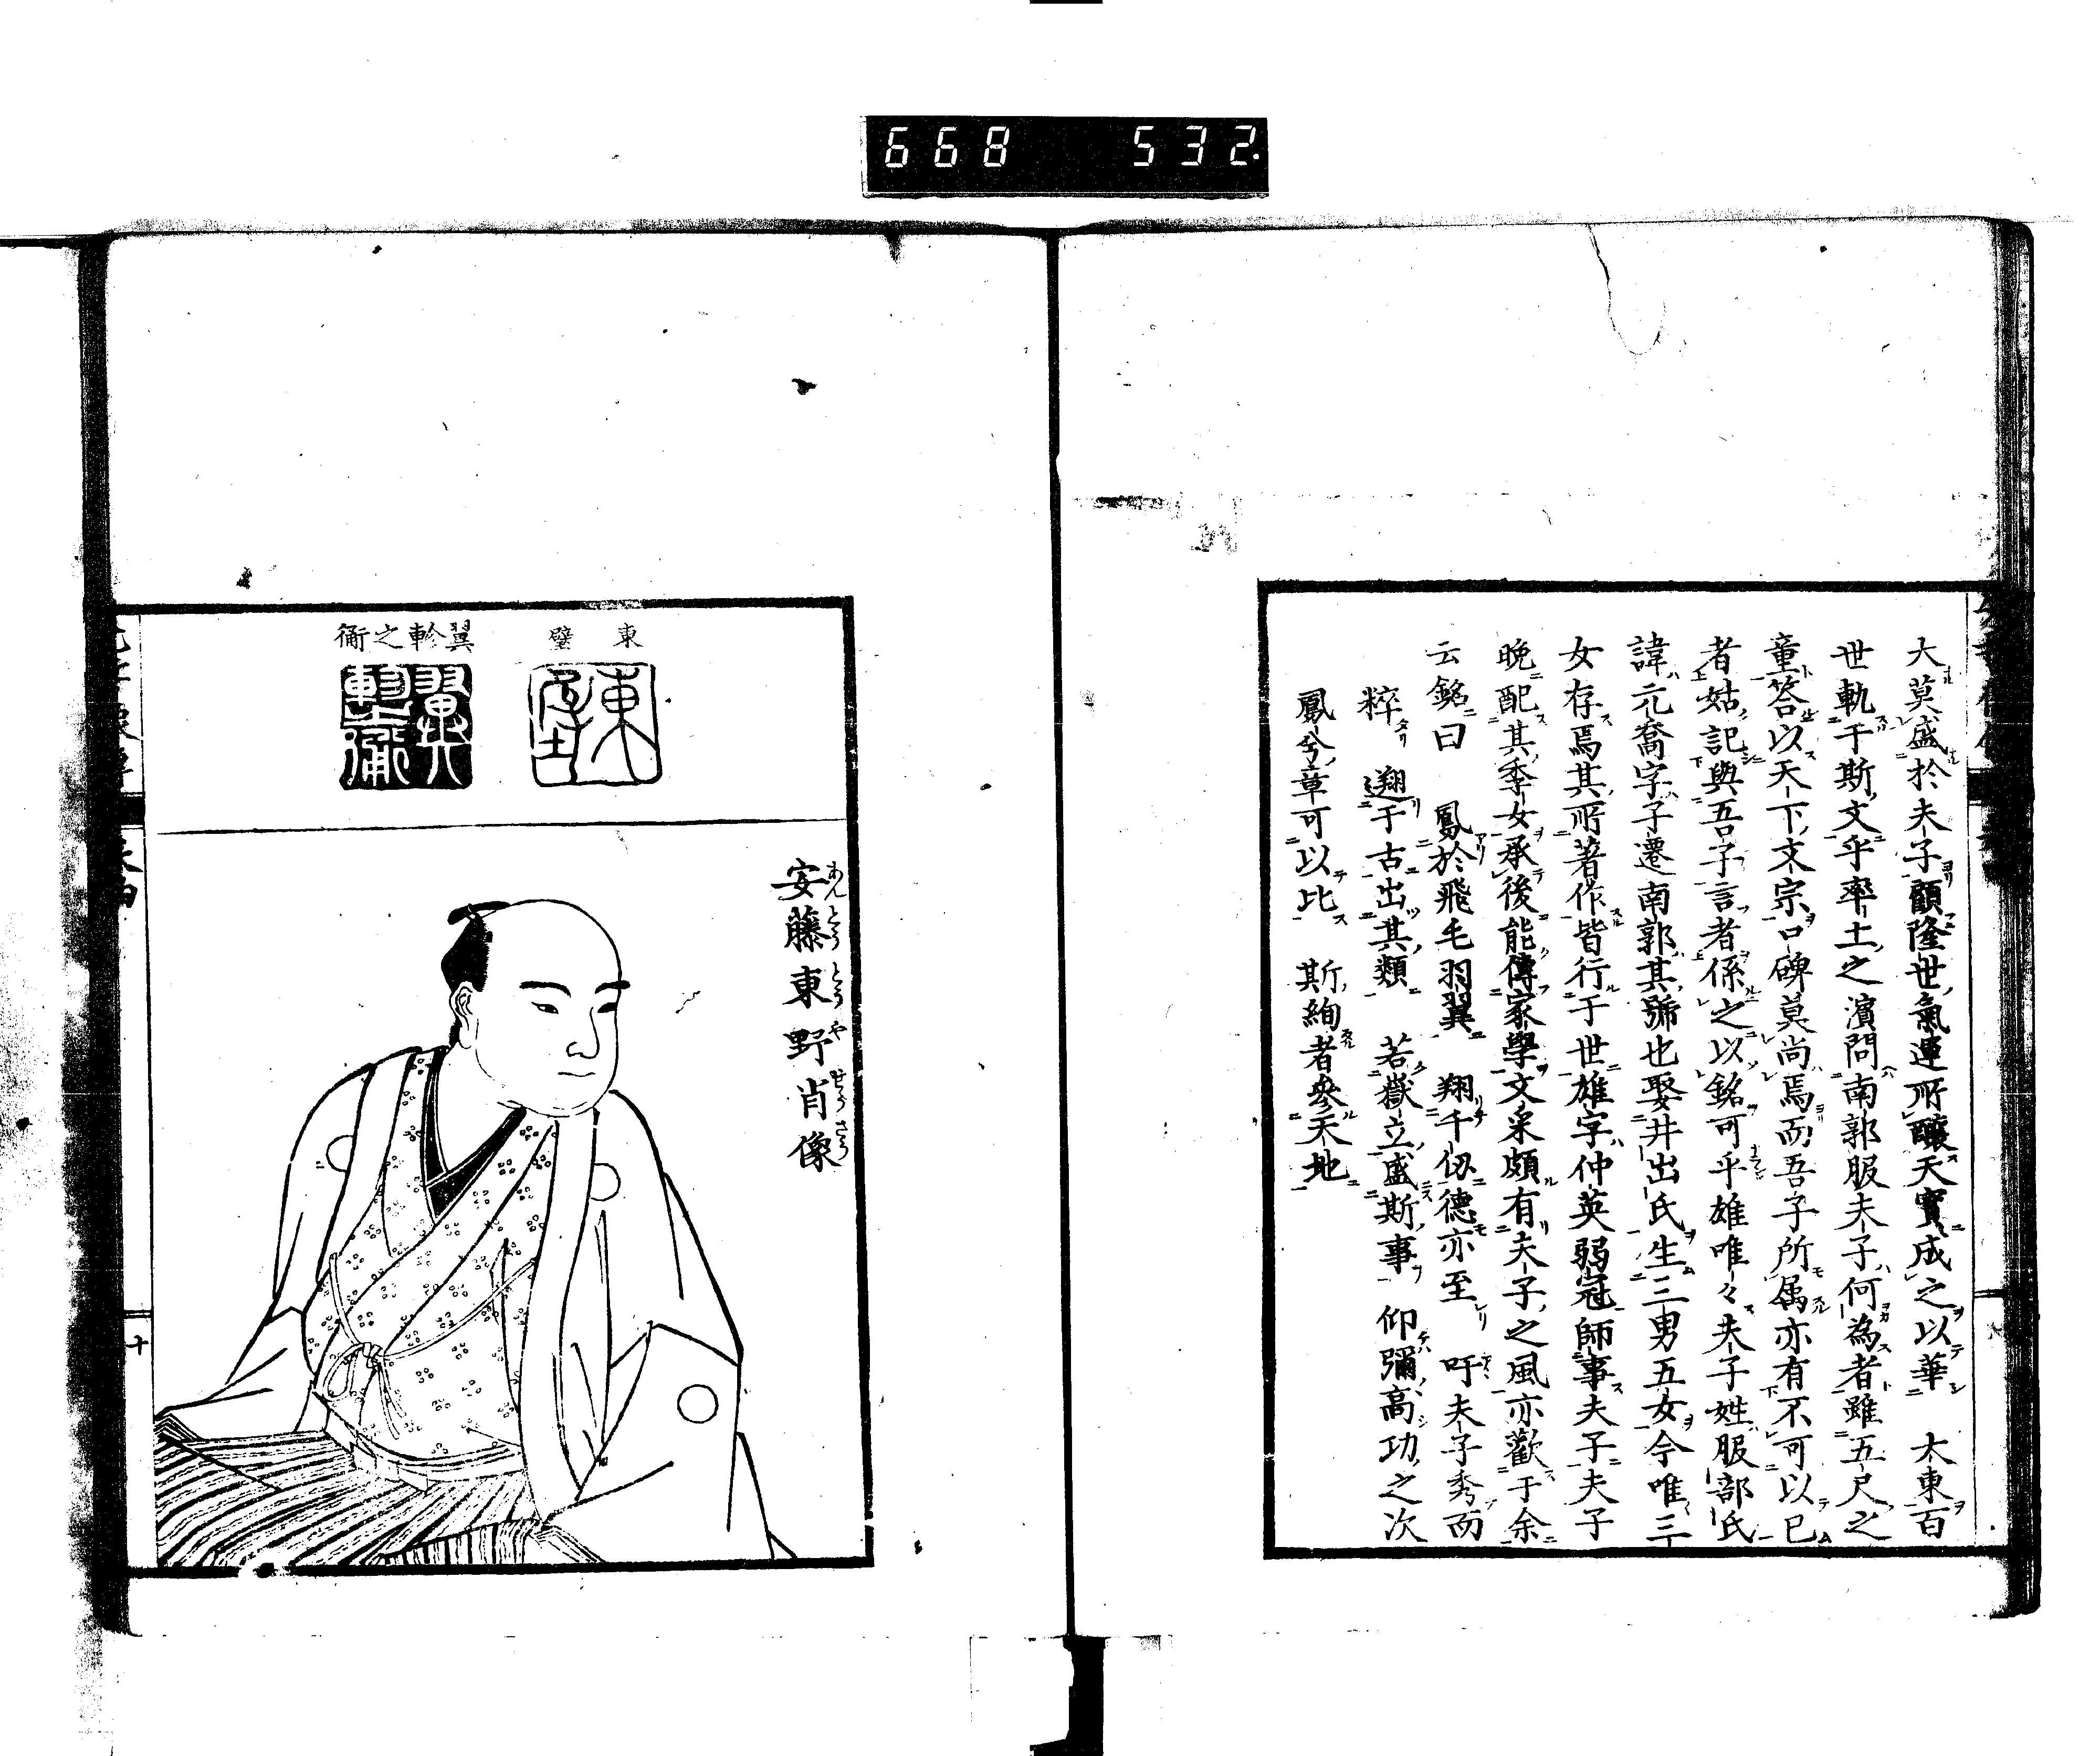 668 532
大莫盛於夫子顧隆世氣運所釀天實成之以華 大東百
世軌于斯文乎率土之濱問南郭服夫子何為者雖五尺之
童答以天下文宗口碑莫尚焉而吾子所属亦有不可以已
者姑記與吾子言者係之以銘可乎雄唯々夫子姓服部氏
諱元喬字子遷南郭其號也娶井出氏生三男五女今唯三
女存焉其所著作皆行于世雄字仲英弱冠師事夫子夫子
晚配其季女承後能傳家學文采頗有夫子之風亦歡于余
云銘曰 鳳於飛毛羽翼 翔千仞德亦至 吁夫子秀而
粹 遡于古出其類 若嶽立盛斯事 仰彌高功之次
鳳兮章可以比 斯絢者參天地
東壁
翼軫之衞
安藤東野肖像
あんとうとうやせうざう
十